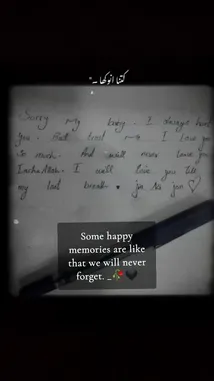 کتنا انوکھا ۔"
Sorry my baby. I always hurt
you. But trust me I love you
so much. And will never leave you
InshaAllah. I will love you till
my last breath. jan ♡
Some happy
memories are like
that we will never
forget. _🥀🖤